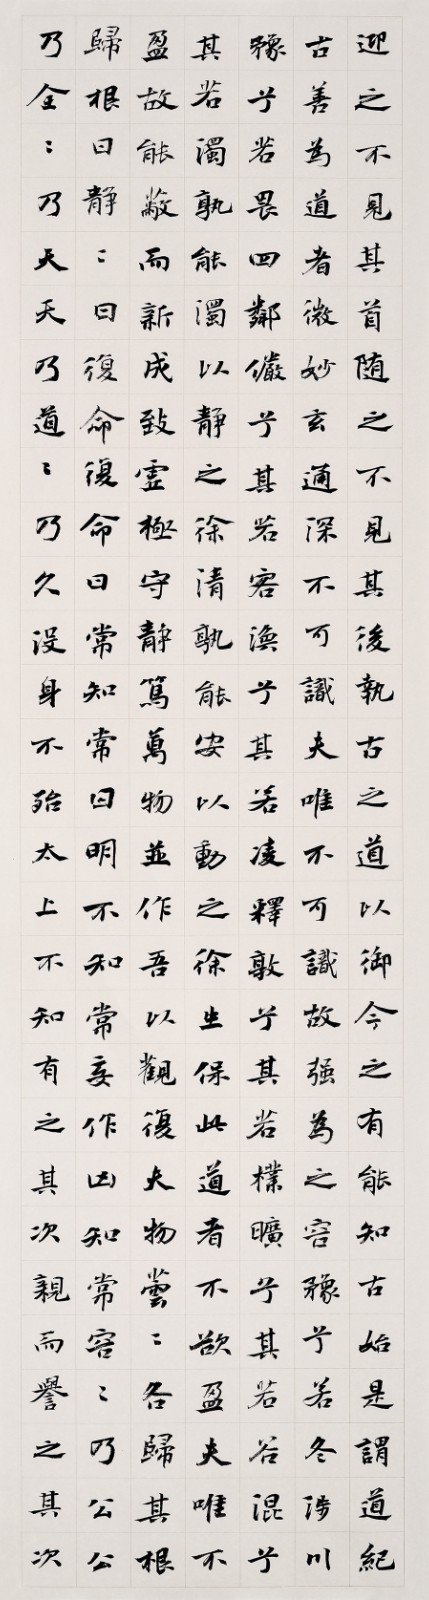 迎之不見其首随之不見其後執古之道以御今之有能知古始是謂道紀
古善為道者微妙玄通深不可識夫唯不可識故强為之容豫兮若冬涉川
豫兮若畏四鄰儼兮其若客渙兮其若凌釋敦兮其若樸曠兮其若谷混兮
其若濁孰能濁以靜之徐清孰能安以動之徐生保此道者不欲盈夫唯不
盈故能敝而新成致虛極守靜篤萬物並作吾以觀復夫物蕓〻各歸其根
歸根曰静〻曰復命復命曰常知常曰明不知常妄作凶知常容〻乃公公
乃全〻乃天天乃道〻乃久没身不殆太上不知有之其次親而譽之其次